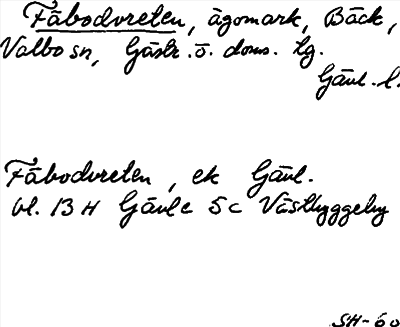 Fäbodvreten, ägomark, Bäck,
Valbo sn, Gästr. ö. doms. tg.
Gävl. l.
Fäbodvreten, ek Gävl.
bl. 13 H Gävle 5 c Västbyggeby
SH-60